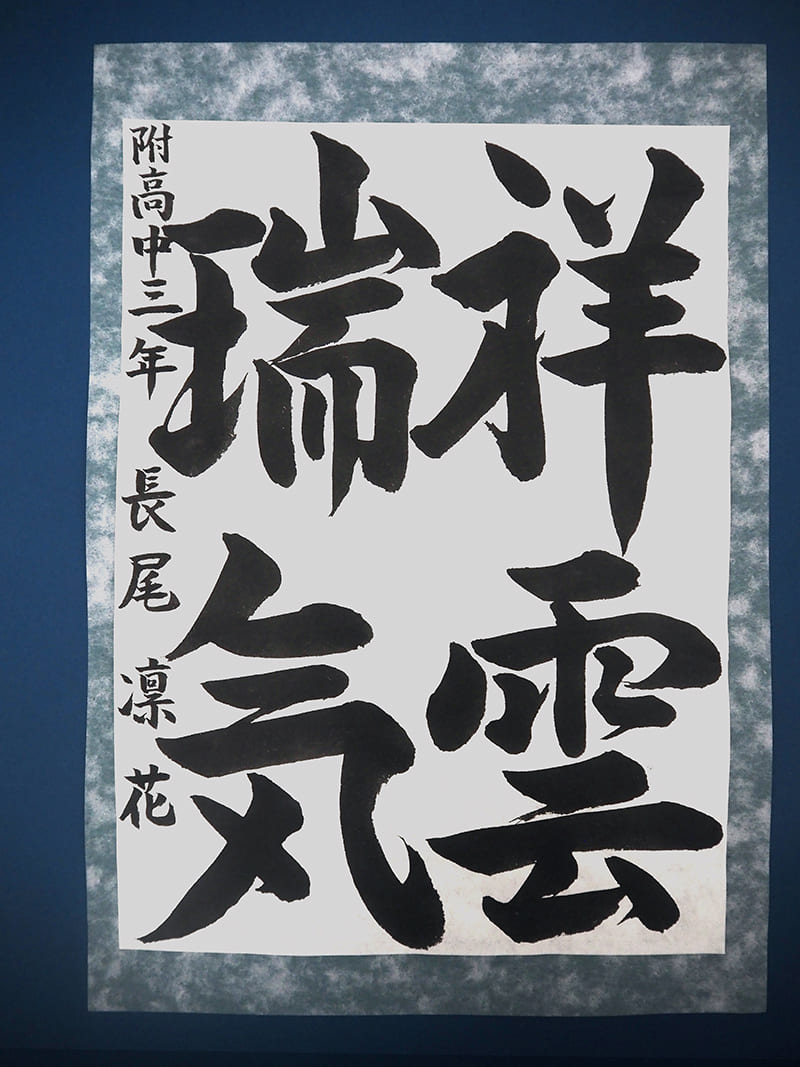 祥雲
瑞気
附高中三年 長尾凛花